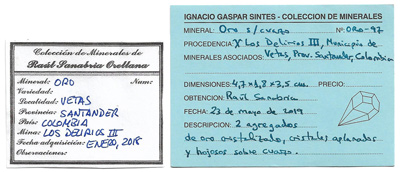 Colección de Minerales de
Raúl Sanabria Orellana
Mineral: ORO Num:
Variedad:
Localidad: VETAS
Provincia: SANTANDER
País: COLOMBIA
Mina: LOS DELIRIOS III
Fecha adquisición: ENERO, 2018
Observaciones:
IGNACIO GASPAR SINTES - COLECCION DE MINERALES
MINERAL: Oro s/cuarzo Nº: ORO-97
PROCEDENCIA Y Los Delirios III, Municipio de
MINERALES ASOCIADOS: Vetas, Prov. Santander, Colombia
DIMENSIONES: 4,7x1,8x3,5 cm.
OBTENCION: Raúl Sanabria
FECHA: 23 de mayo de 2019
DESCRIPCION: 2 agregados
de oro cristalizado, cristales aplanados
y hojosos sobre cuarzo.